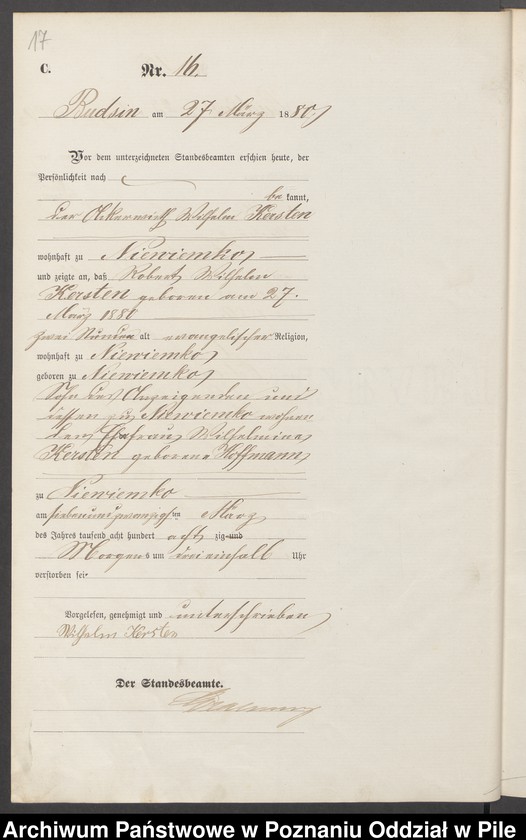 17
C. Nr. 16.
Budsin am 27 März 1880.
Vor dem unterzeichneten Standesbeamten erschien heute, der
Persönlichkeit nach
bekannt,
der Ackerwirth Wilhelm Kersten
wohnhaft zu Niewiemko
und zeigte an, daß Robert Wilhelm
Kersten geboren am 27.
März 1880
zwei Stunden alt evangelischer Religion,
wohnhaft zu Niewiemko
geboren zu Niewiemko
Sohn des Anzeigenden und
dessen zu Niewiemko wohnen
den Ehefrau Wilhelmine
Kersten geborene Hoffmann
zu Niewiemko
am siebenundzwanzigsten März
des Jahres tausend acht hundert achtzig und
Morgens um drei einhalb Uhr
verstorben sei.
Vorgelesen, genehmigt und unterschrieben
Wilhelm Kersten
Der Standesbeamte.
Archiwum Państwowe w Poznaniu Oddział w Pile